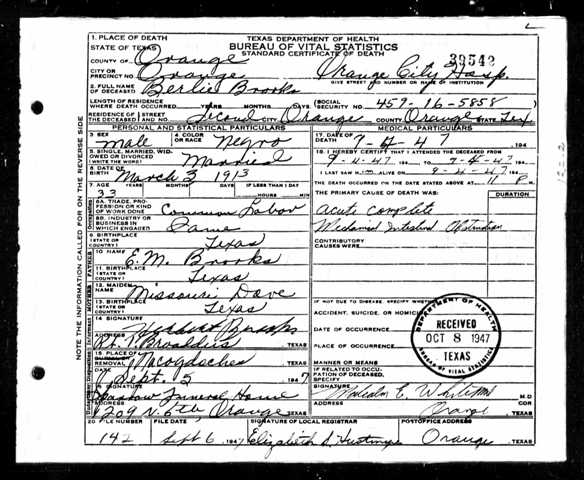 1. PLACE OF DEATH
STATE OF TEXAS
TEXAS DEPARTMENT OF HEALTH
BUREAU OF VITAL STATISTICS
STANDARD CERTIFICATE OF DEATH
39542
COUNTY OF Orange
CITY OR PRECINCT NO. Orange
Orange City Hosp.
GIVE STREET AND NUMBER OR NAME OF INSTITUTION
2. FULL NAME OF DECEASED Berlie Brooks
LENGTH OF RESIDENCE WHERE DEATH OCCURRED YEARS MONTHS DAYS
SOCIAL SECURITY NO. 459-16-5858
RESIDENCE OF THE DECEASED STREET AND NO. Second CITY Orange COUNTY Orange STATE Tex
PERSONAL AND STATISTICAL PARTICULARS
MEDICAL PARTICULARS
3. SEX Male
4. COLOR OR RACE Negro
17. DATE OF DEATH 47 194
5. SINGLE, MARRIED, WIDOWED OR DIVORCED (WRITE THE WORD) Married
18. I HEREBY CERTIFY THAT I ATTENDED THE DECEASED FROM
9-4-47 194 TO 9-4-47 194
6. DATE OF BIRTH March 3 1913
I LAST SAW H ALIVE ON 9-4-47 194
7. AGE YEARS MONTHS DAYS IF LESS THAN 1 DAY
33 HOURS MIN
THE DEATH OCCURRED ON THE DATE STATED ABOVE AT M
THE PRIMARY CAUSE OF DEATH WAS: DURATION
8A. TRADE, PROFESSION OR KIND OF WORK DONE Common Labor
acute complete
8B. INDUSTRY OR BUSINESS IN WHICH ENGAGED Same
Mechanical Intestinal Obstruction
9. BIRTHPLACE (STATE OR COUNTRY) Texas
CONTRIBUTORY CAUSES WERE:
10. NAME E.M. Brooks
11. BIRTHPLACE (STATE OR COUNTRY) Texas
12. MAIDEN NAME Missouri Dave
13. BIRTHPLACE (STATE OR COUNTRY) Texas
IF NOT DUE TO DISEASE, SPECIFY WHETHER
ACCIDENT, SUICIDE, OR HOMICIDE
14. SIGNATURE
DATE OF OCCURRENCE
ADDRESS Rt. 1 Broaddus TEXAS
PLACE OF OCCURRENCE
DEPARTMENT OF HEALTH
RECEIVED
OCT 8 1947
TEXAS
BUREAU OF VITAL STATISTICS
15. PLACE OF BURIAL OR REMOVAL Nacogdoches TEXAS
MANNER OR MEANS
DATE Sept. 1947
IF RELATED TO OCCUPATION OF DECEASED, SPECIFY
16. SIGNATURE Funeral Home
SIGNATURE Malcolm E. M.D.
ADDRESS 1209 N. 6th, Orange TEXAS
ADDRESS Orange TEXAS
20. FILE NUMBER FILE DATE SIGNATURE OF LOCAL REGISTRAR POSTOFFICE ADDRESS
142 Sept 6 1947 Elizabeth S. Orange TEXAS
NOTE THE INFORMATION CALLED FOR ON THE REVERSE SIDE